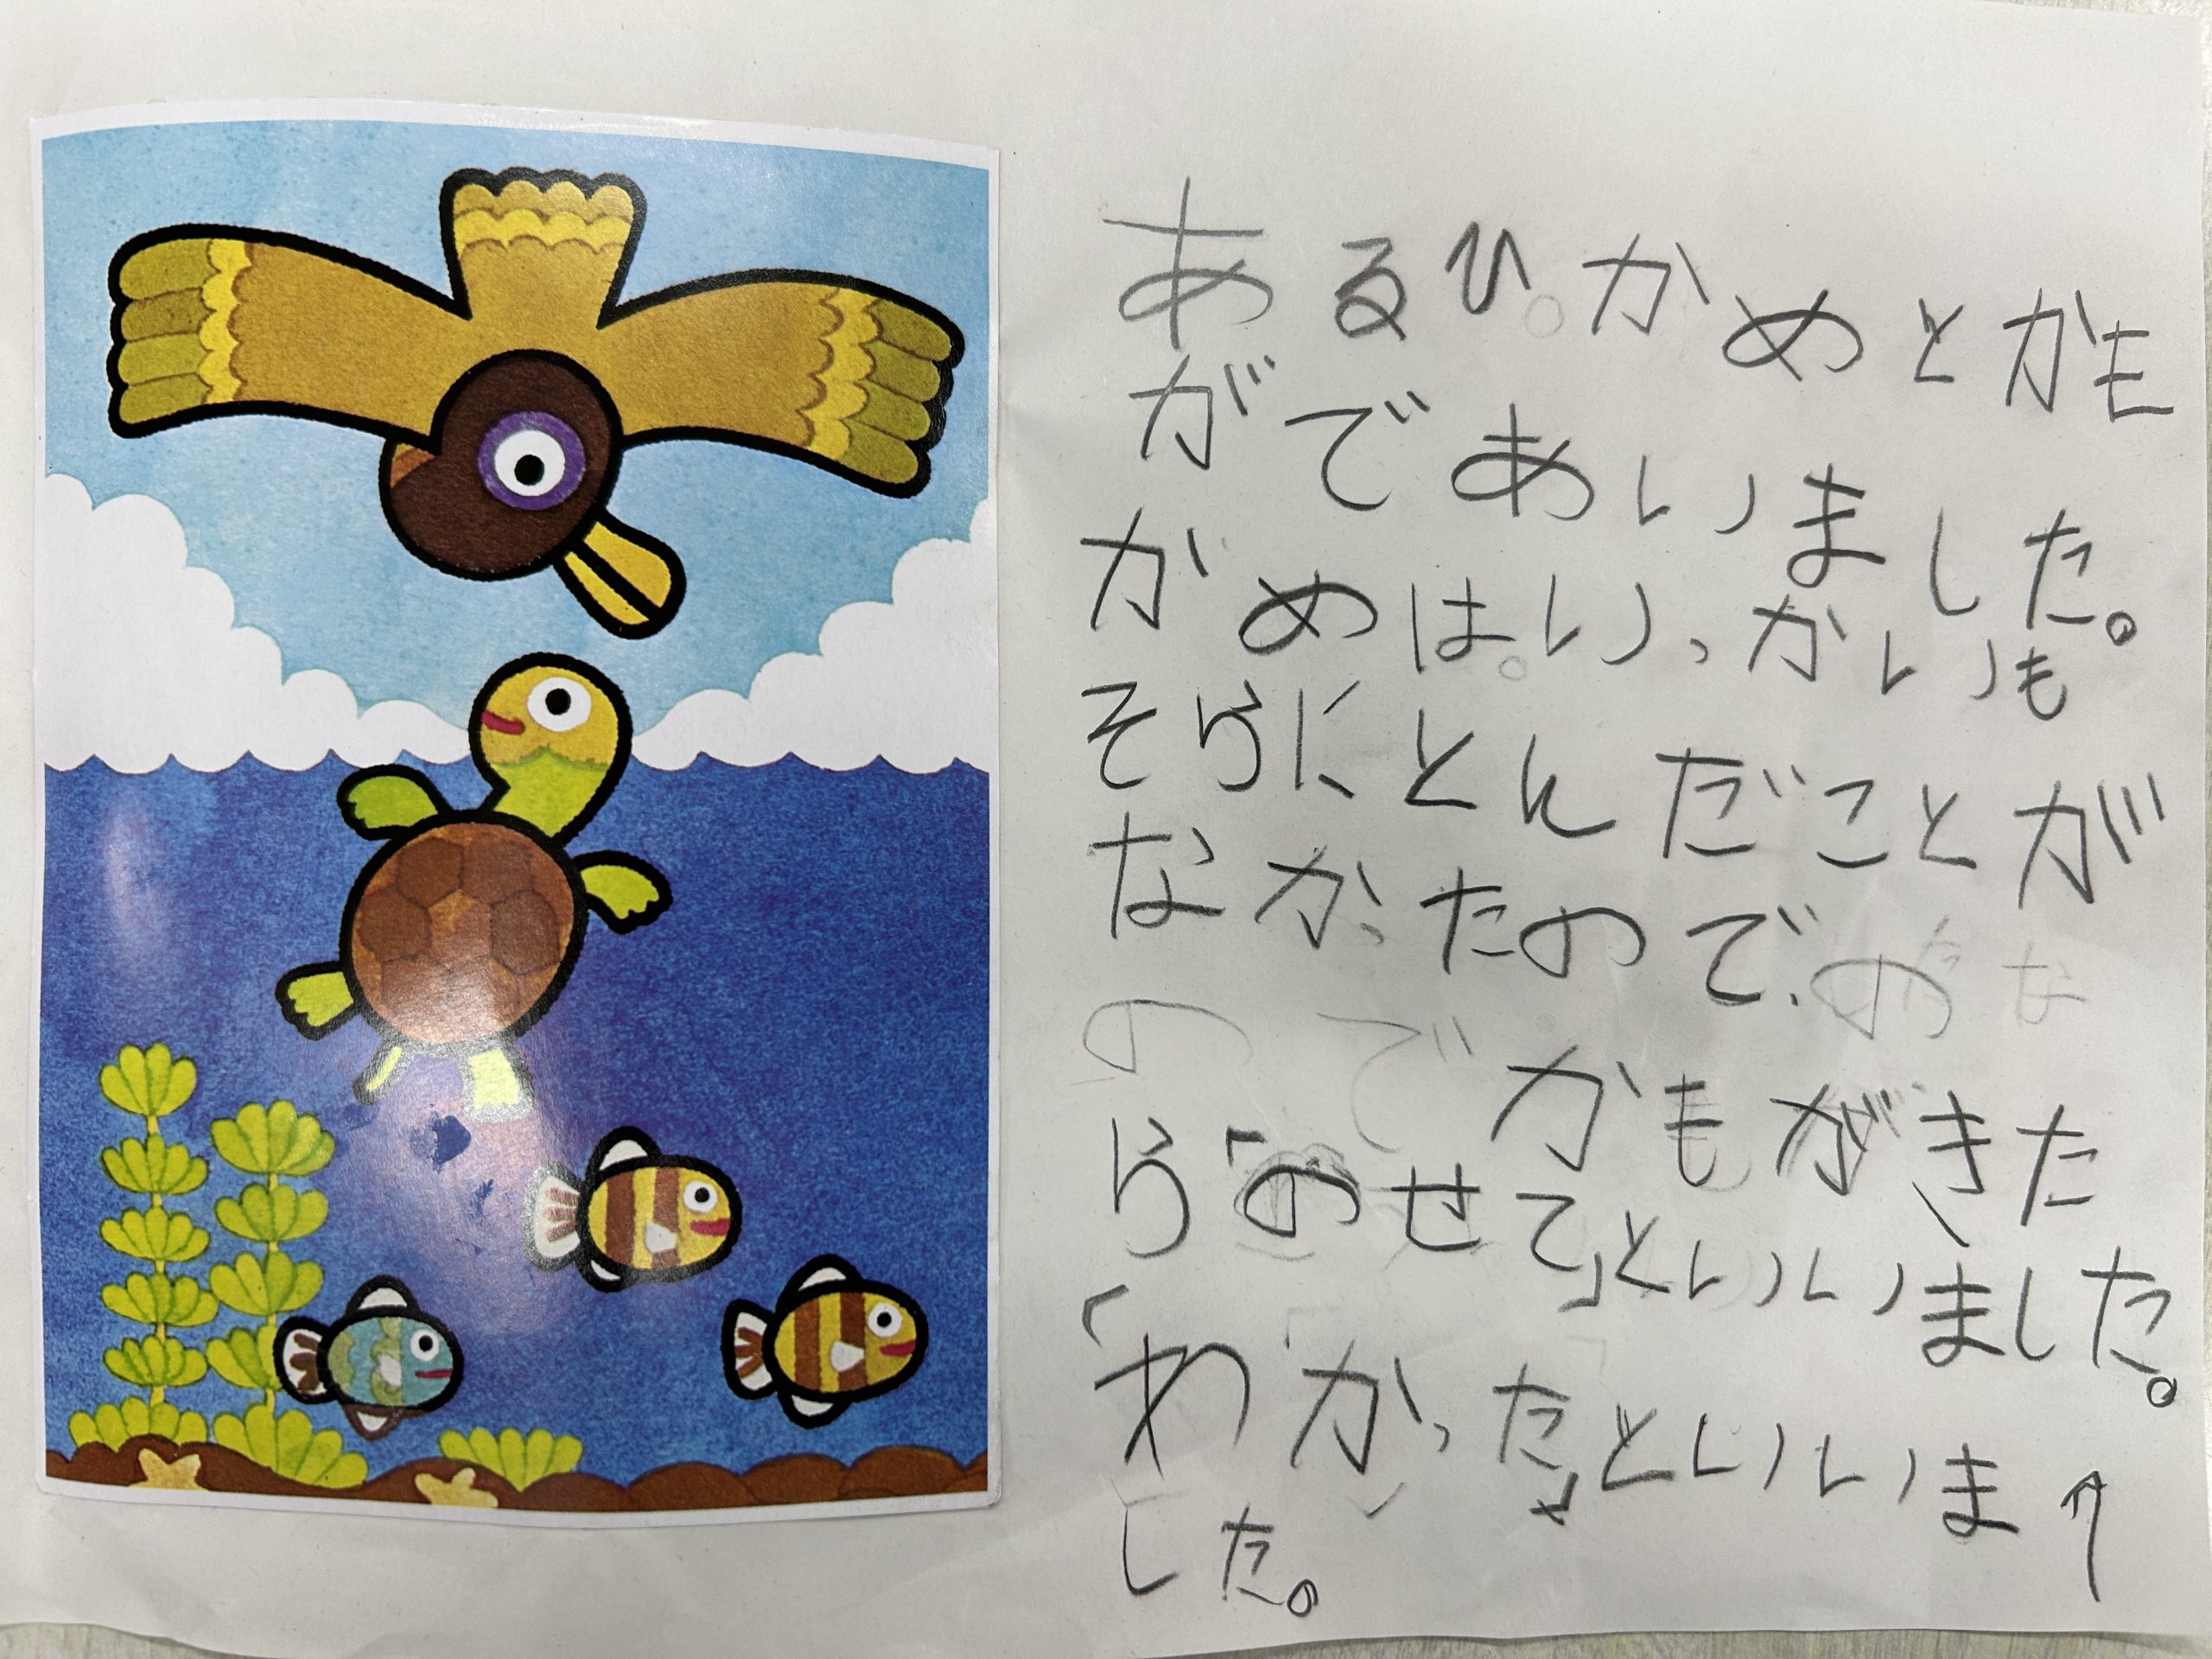 あるひ。かめとかも
がであいました。
かめは。いっかいも
そらにとんだことが
なかったので、
かもがきた
ら「のせて」といいました。
「わかった」といいま
した。